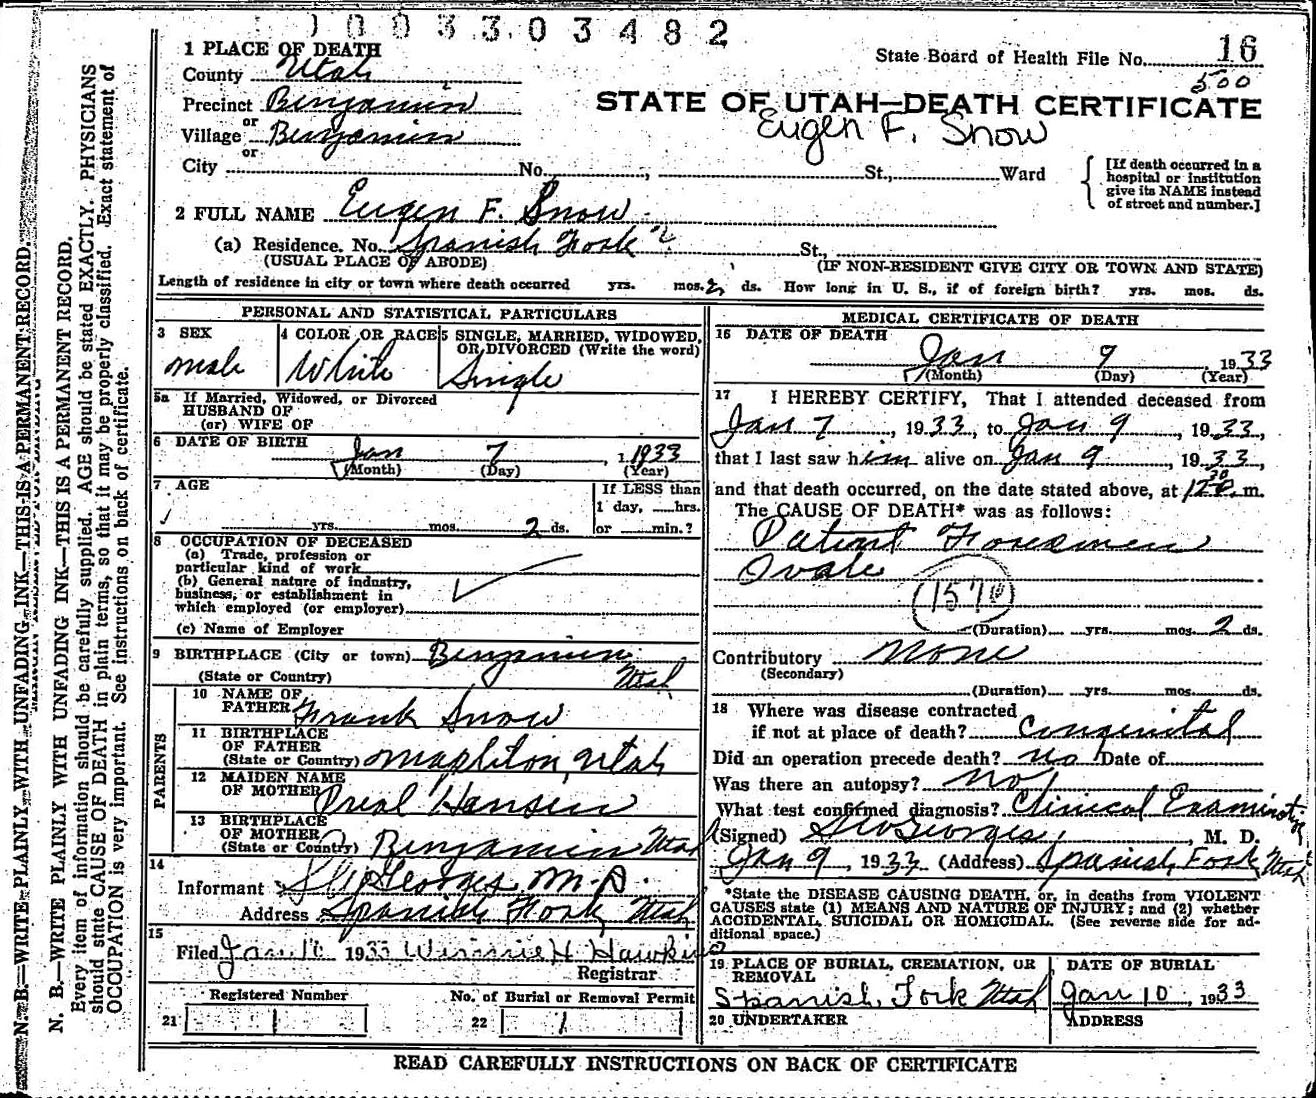 0003303482
1 PLACE OF DEATH
State Board of Health File No. 16
County Utah
500
Precinct Benjamin
STATE OF UTAH—DEATH CERTIFICATE
or
Village Benjamin
Eugen F. Snow
or
City No. , St., Ward
[If death occurred in a hospital or institution give its NAME instead of street and number.]
2 FULL NAME Eugen F. Snow
(a) Residence. No. Spanish Fork St.,
(USUAL PLACE OF ABODE) (IF NON-RESIDENT GIVE CITY OR TOWN AND STATE)
Length of residence in city or town where death occurred yrs. mos. 2 ds. How long in U. S., if of foreign birth? yrs. mos. ds.
PERSONAL AND STATISTICAL PARTICULARS
3 SEX
male
4 COLOR OR RACE
White
5 SINGLE, MARRIED, WIDOWED,
OR DIVORCED (Write the word)
Single
5a If Married, Widowed, or Divorced
HUSBAND OF
(or) WIFE OF
6 DATE OF BIRTH
Jan 7, 1933
(Month) (Day) (Year)
7 AGE
yrs. mos. 2 ds.
If LESS than
1 day, hrs.
or min.?
8 OCCUPATION OF DECEASED
(a) Trade, profession or
particular kind of work
(b) General nature of industry,
business, or establishment in
which employed (or employer)
(c) Name of Employer
9 BIRTHPLACE (City or town) Benjamin
(State or Country) Utah
PARENTS
10 NAME OF
FATHER Frank Snow
11 BIRTHPLACE
OF FATHER
(State or Country) Mapleton, Utah
12 MAIDEN NAME
OF MOTHER Hansen
13 BIRTHPLACE
OF MOTHER
(State or Country) Benjamin Utah
14
Informant Georges M.D.
Address Spanish Fork, Utah
15
Filed Jan 10 1933 Winnie H Hawkins
Registrar
Registered Number
21 1
No. of Burial or Removal Permit
22 1
MEDICAL CERTIFICATE OF DEATH
16 DATE OF DEATH
Jan 9, 1933
(Month) (Day) (Year)
17 I HEREBY CERTIFY, That I attended deceased from
Jan 7, 1933, to Jan 9, 1933,
that I last saw him alive on Jan 9, 1933,
and that death occurred, on the date stated above, at 12 m.
The CAUSE OF DEATH* was as follows:
Patient Foramen
Ovale
157
(Duration) yrs. mos. 2 ds.
Contributory None
(Secondary)
(Duration) yrs. mos. ds.
18 Where was disease contracted
if not at place of death? Congenital
Did an operation precede death? no Date of
Was there an autopsy? no
What test confirmed diagnosis? Clinical Examination
(Signed) Georges, M. D.
Jan 9, 1933 (Address) Spanish Fork Utah
*State the DISEASE CAUSING DEATH, or, in deaths from VIOLENT
CAUSES state (1) MEANS AND NATURE OF INJURY; and (2) whether
ACCIDENTAL, SUICIDAL OR HOMICIDAL. (See reverse side for ad-
ditional space.)
19 PLACE OF BURIAL, CREMATION, OR
REMOVAL
Spanish Fork Utah
DATE OF BURIAL
Jan 10, 1933
20 UNDERTAKER
ADDRESS
READ CAREFULLY INSTRUCTIONS ON BACK OF CERTIFICATE
N. B.—WRITE PLAINLY WITH UNFADING INK—THIS IS A PERMANENT RECORD.
N. B.—WRITE PLAINLY WITH UNFADING INK—THIS IS A PERMANENT RECORD.
Every item of information should be carefully supplied. AGE should be stated EXACTLY. PHYSICIANS
should state CAUSE OF DEATH in plain terms, so that it may be properly classified. Exact statement of
OCCUPATION is very important. See instructions on back of certificate.